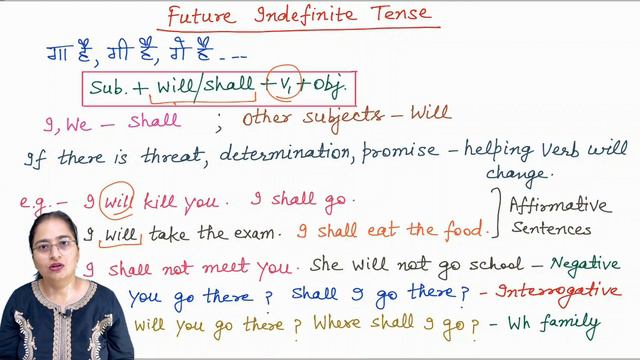 Future Indefinite Tense
गा है, गी है, गे है ---
Sub. + Will/Shall + V₁ + Obj.
I, We - Shall ; Other subjects - Will
If there is threat, determination, promise - helping Verb will change.
e.g. - I will kill you. I shall go.
I will take the exam. I shall eat the food.
Affirmative Sentences
I shall not meet you. She will not go school - Negative
you go there? Shall I go there? - Interrogative
will you go there? Where shall I go? - Wh family